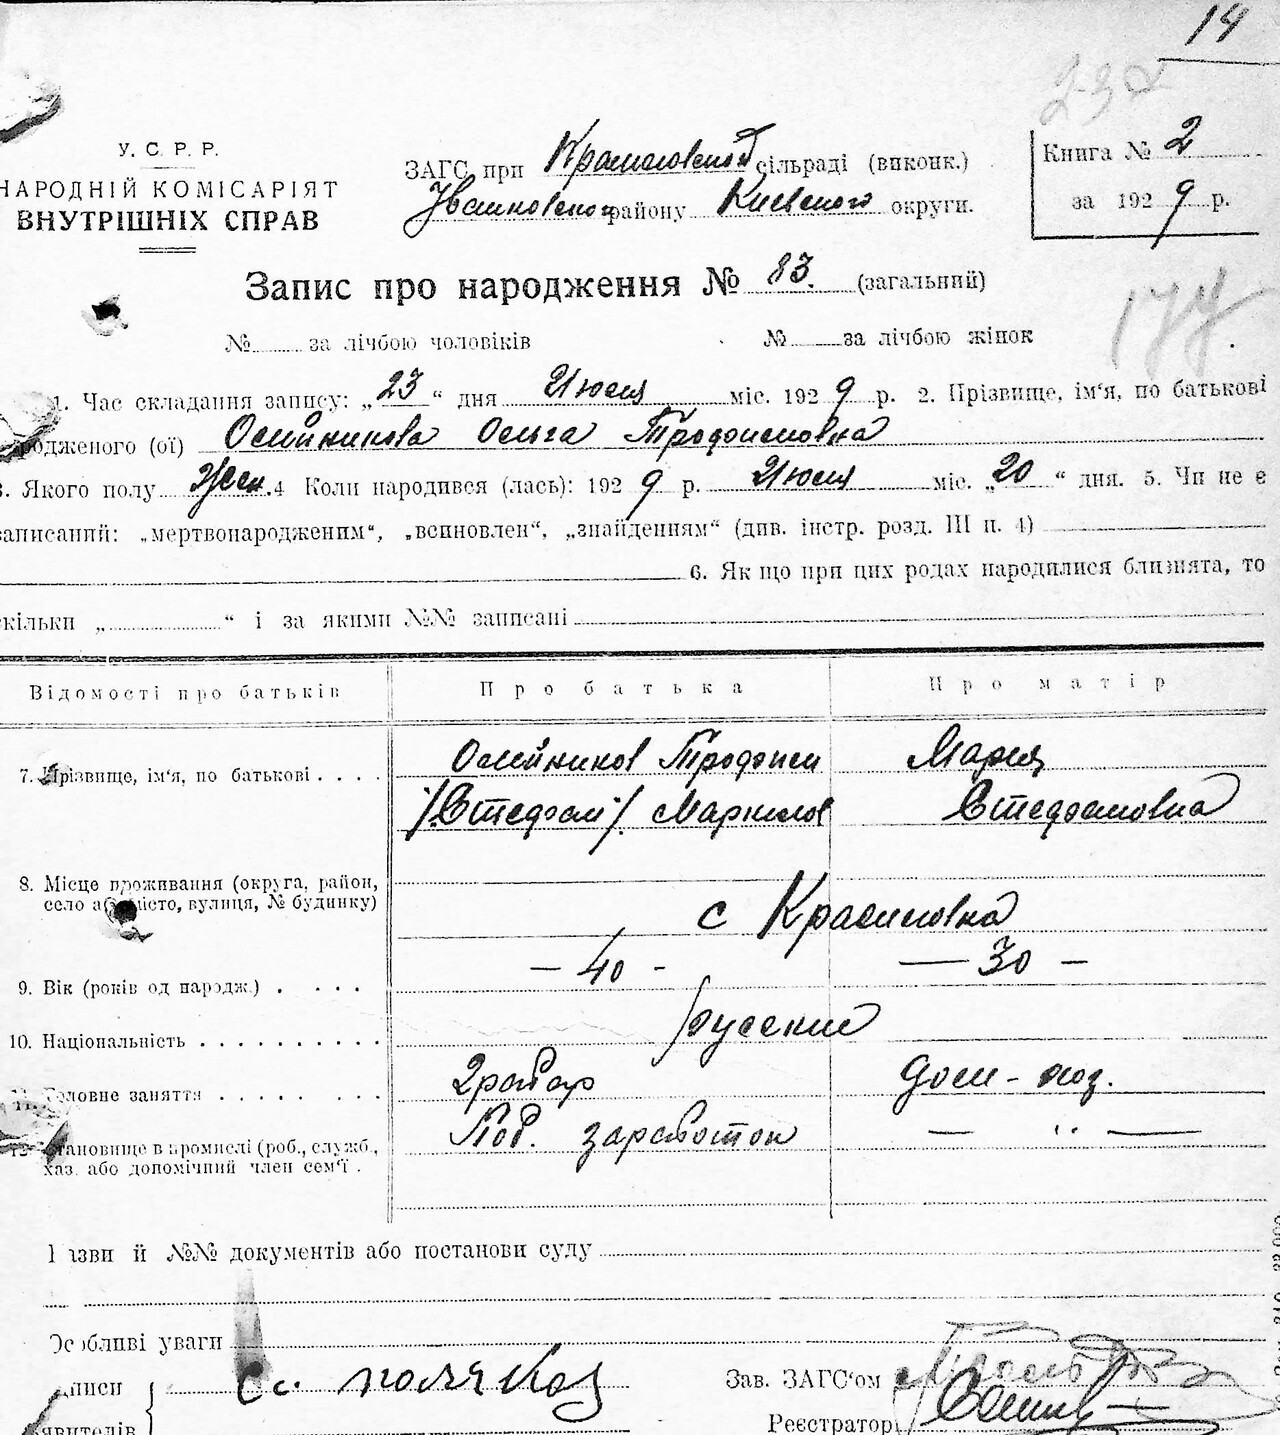 14
232
У. С. Р. Р.
НАРОДНІЙ КОМІСАРІЯТ
ВНУТРІШНІХ СПРАВ
ЗАГС при сільраді (виконк.)
району Киевского округи.
Книга № 2
за 1929 р.
Запис про народження № 83. (загальний)
177
№ за лічбою чоловіків № за лічбою жінок
1. Час складання запису: „23“ дня Июля міс. 1929 р. 2. Прізвище, ім'я, по батькові
родженого (ої) Олейникова Ольга Трофимовна
3. Якого полу жен. 4 Коли народився (лась): 1929 р. Июля міс. „20“ дня. 5. Чи не є
записаний: „мертвонародженим“, „всиновлен“, „знайденням“ (див. інстр. розд. III п. 4)
6. Як що при цих родах народилися близнята, то
скільки „ “ і за якими №№ записані
Відомості про батьків Про батька Про матір
7. Прізвище, ім'я, по батькові . . . . Олейников Трофим Мария
/Стефан/ Маркелов Стефановна
8. Місце проживання (округа, район,
село або місто, вулиця, № будинку) с
9. Вік (років од народж.) . . . . – 40 – — 30 –
10. Національність . . . . . . . . . . русские
11. Головне заняття . . . . . . . . дом - хоз.
12. Становище в промислі (роб., служб., Под. заработок — ,, —
хаз. або допомічний член сем'ї .
Назви й №№ документів або постанови суду
Особливі уваги
Підписи Зав. ЗАГС'ом
явителів Реєстратор